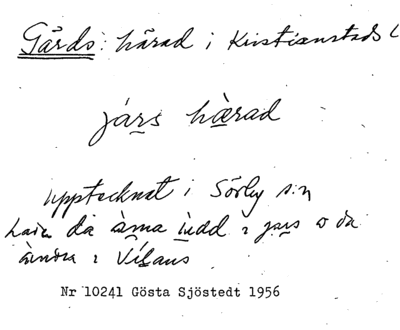 Gärds: härad i Kristianstads l
járs hàerad
upptecknat i Sörby s:n
da àma ìudd i jars o da
àndra i Vílans
Nr 10241 Gösta Sjöstedt 1956